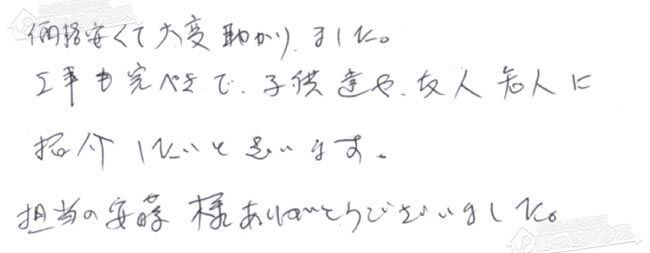 価格安くて大変助かりました。
工事も完ぺきで、子供達や、友人知人に
紹介したいと思います。
担当の安藤様ありがとうございました。